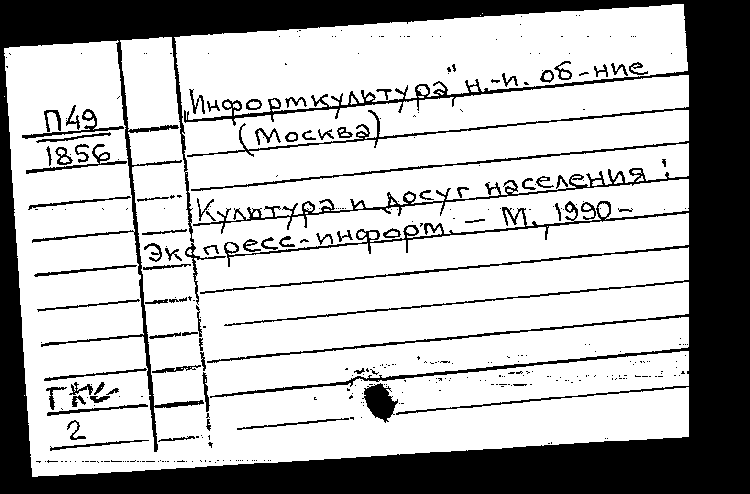 П49
1856
„Информкультура", н.-и. об-ние
(Москва)
Культура и досуг населения:
Экспресс-информ. — М., 1990-
ГК
2